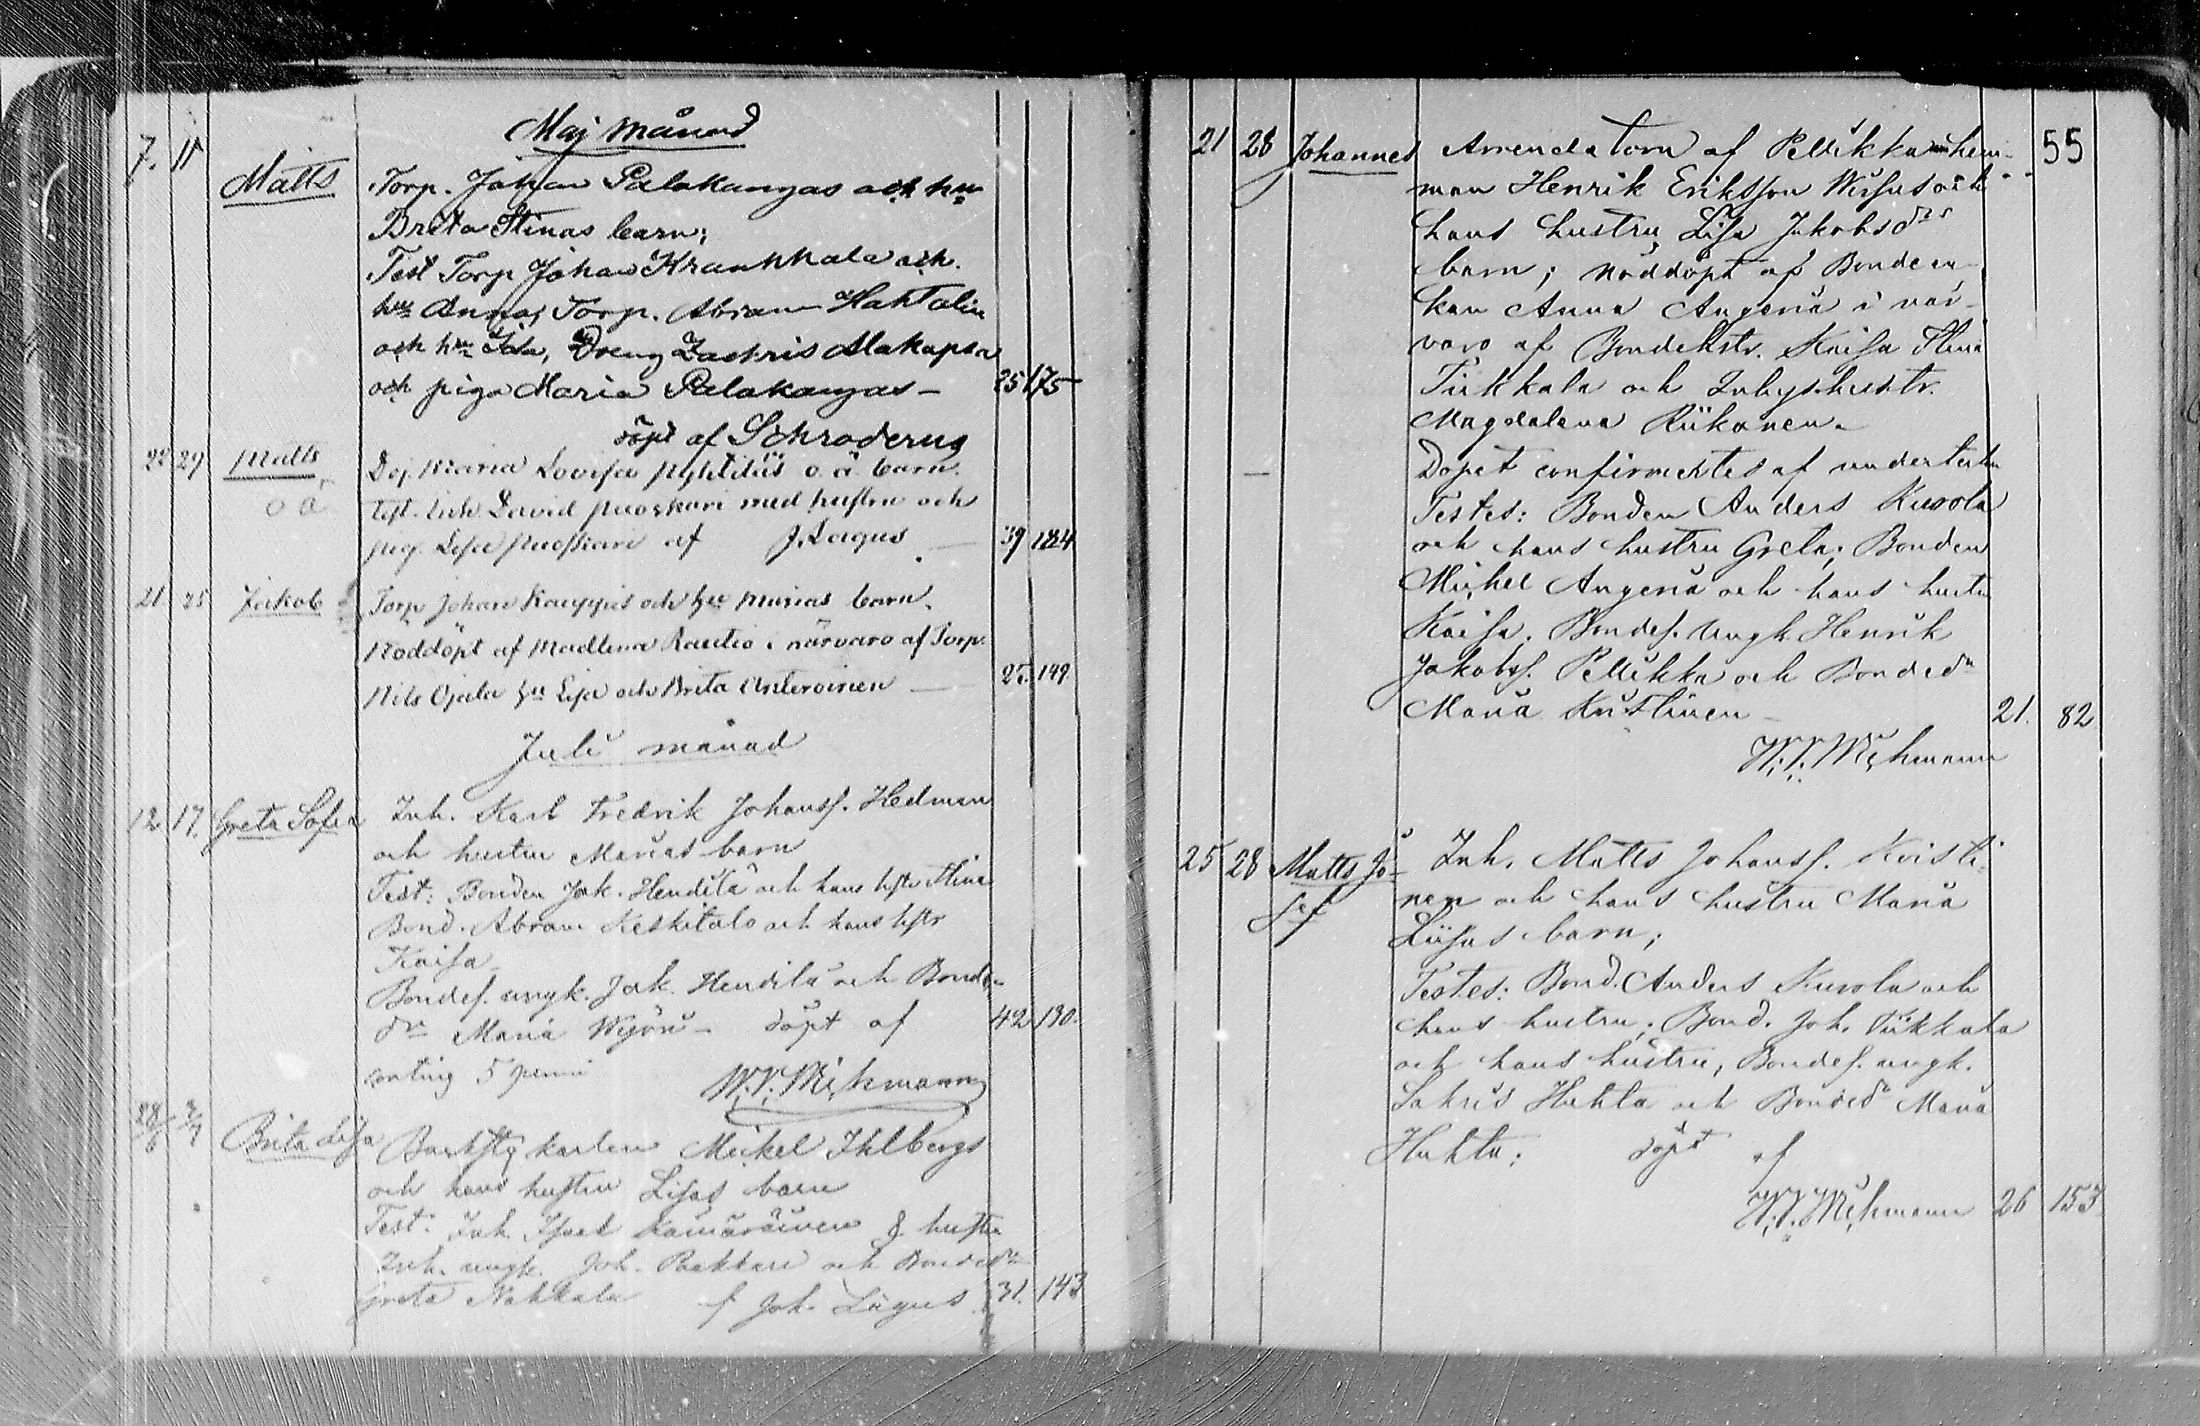 Maj månad
7. 11 Matts Torp. Johan Palokangas och hu
Brita Stinas barn;
Test Torp Johan Krankkala och
hu Anna, Torp. Abram Hahtolin
och hu Ida, Dreng Zachris Alakapsa
och piga Maria Palokangas – 25 175
döpt af Schroderus
22 29 Matts Dej. Maria Lovisa o. ä. barn.
o ä Test. Inh. David Muoskari med hustru och
pig. Lisa Muoskari af J. Lagus – 39 184
21 25 Jakob Torp Johan Kauppis och hu Marias barn.
Nöddöpt af Madlena Rautio i närvaro af Torp.
Nils Ojala hu Lisa och Brita Anteroinen – 25. 149
Juli månad
12 17. Greta Sofia Inh. Karl Fredrik Johanss. Hedman
och hustru Marias barn
Test: Bonden Jak. Hendilä och hans hstr Stina
Bond. Abram Keskitalo och hans hstr
Kaisa
Bondes. ungk. Jak. Hendilä och Bonde-
dr Maria – döpt af 42 130.
5 penni W. V. Michmann
28/6 2/7 Brita Lisa Mickel Ihlbergs
och hans hustru Lisas barn
Test: Inh Isak Kamäräinen & hustru
Inh. ungk. Joh. Pakkari och Bondedr
Greta Nahkala f Joh. Lagus 31. 143
55
21 28 Johannes Arrendatorn af Pellikka hem-
man Henrik Eriksson och
hans hustru Lisa Jakobsdrs
barn; nöddöpt af Bondeen-
kan Anna Angeria i när-
varo af Bondehstr. Kaisa Stina
Tiikkala och Inhyshustr.
Magdalena Riikonen.
Dopet confirmerites af underteckn
Testes: Bonden Anders Kuvola
och hans hustru Greta; Bonden
Michel Angeria och hans hustru
Kaisa. Bondes. ungk Henrik
Jakobss. Pellikka och Bondedr
Maria – 21. 82
W. V. Michmann
25 28 Matts Jo- Inh. Matts Johanss. Koisti-
sef nen och hans hustru Maria
Liisas barn;
Testes: Bond. Anders Kuvola och
hans hustru; Bond. Joh. Tiikkala
och hans hustru, Bondes. ungk.
Sakris Huhta och Bondedr Maria
Huhta; döpt af
W. V. Michmann 26 153